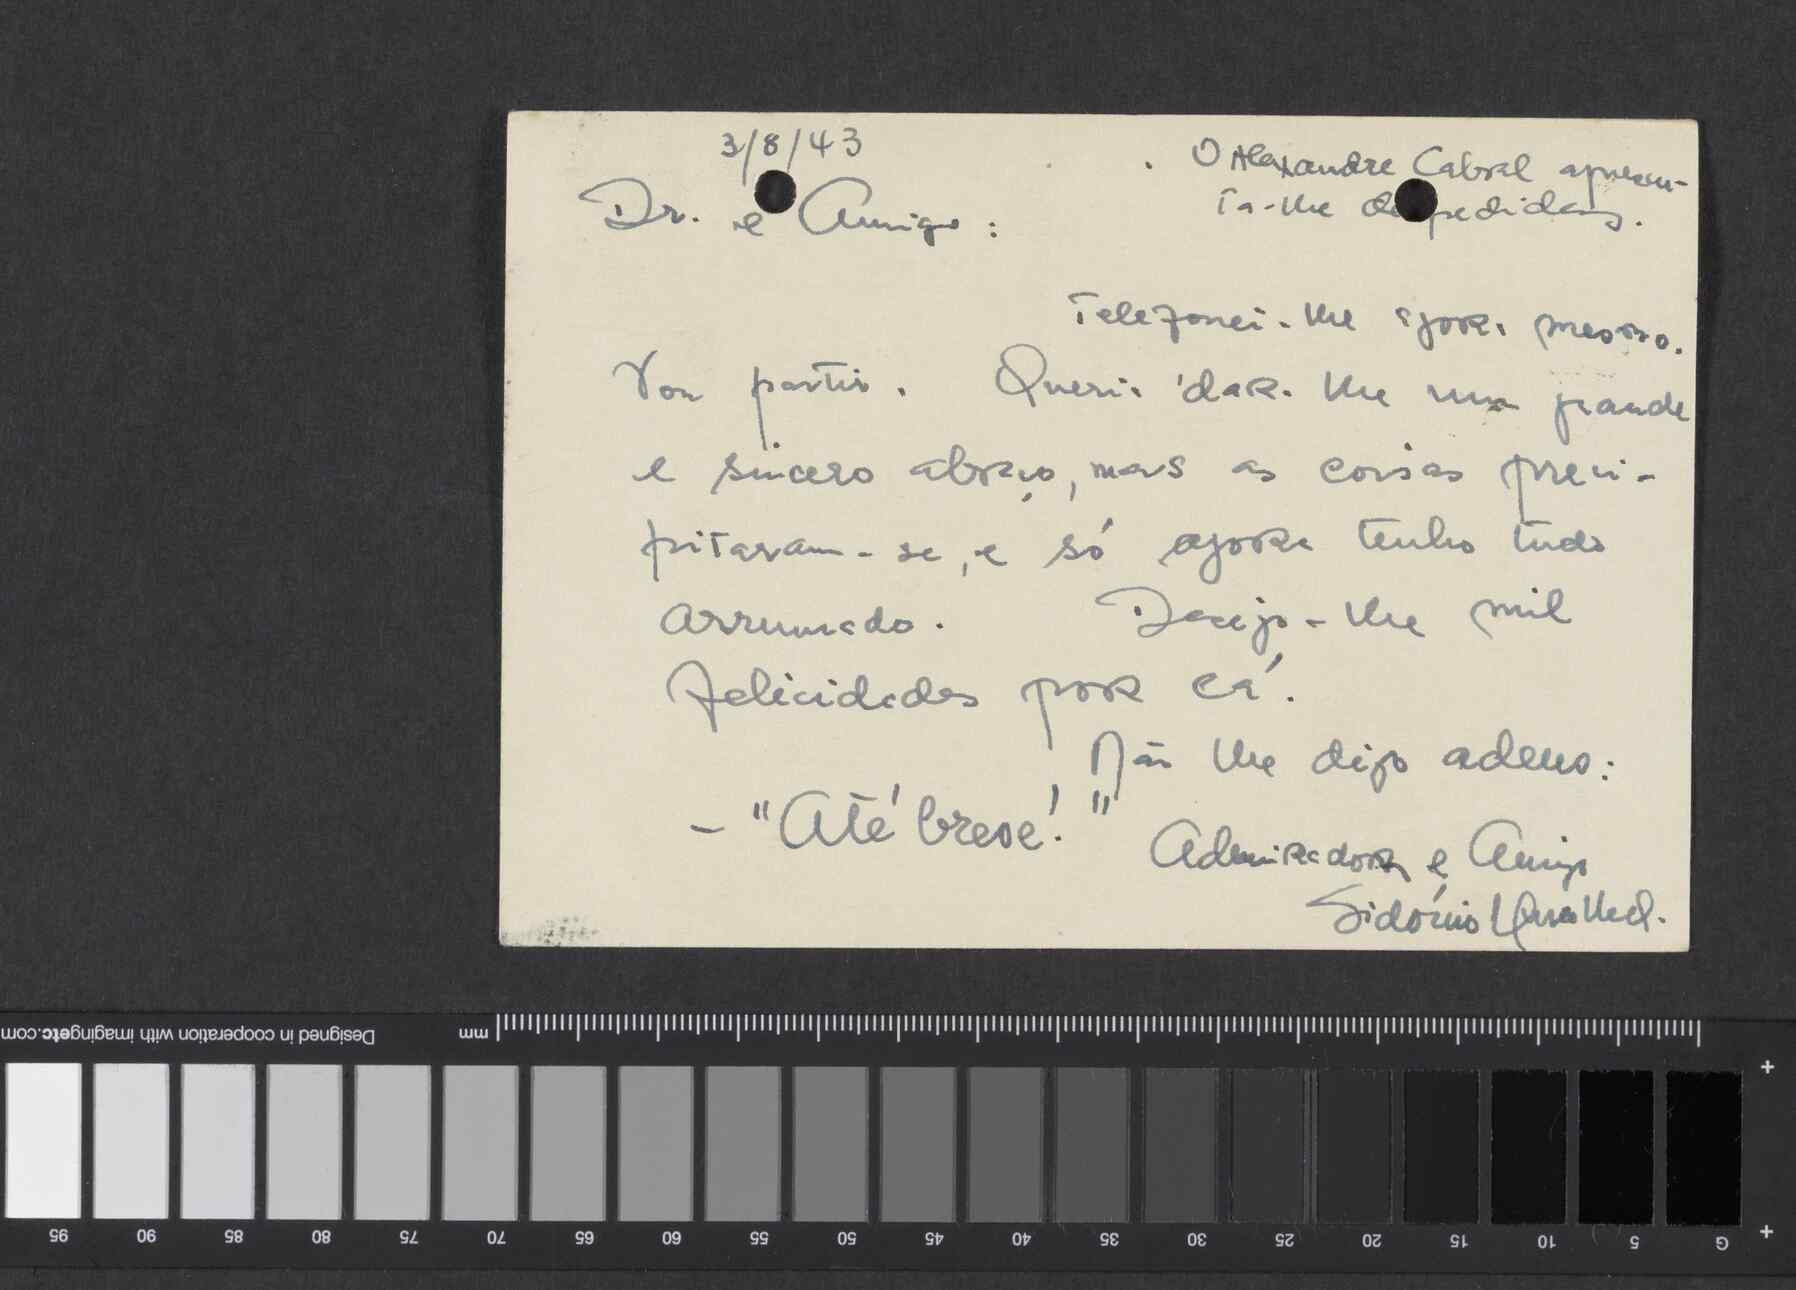 3/8/43
O Alexandre Cabral apresen-
ta-lhe despedidas.
Dr. e Amigo:
Telefonei-lhe agora mesmo.
Vou partir. Queria dar-lhe um grande
e sincero abraço, mas as coisas preci-
pitaram-se, e só agora tenho tudo
arrumado. Desejo-lhe mil
felicidades por cá.
Não lhe digo adeus:
- "Até breve!"
Admirador e Amigo
Sidónio Muralha.
Designed in cooperation with imagingetc.com
mm
95 90 85 80 75 70 65 60 55 50 45 40 35 30 25 20 15 10 5 G